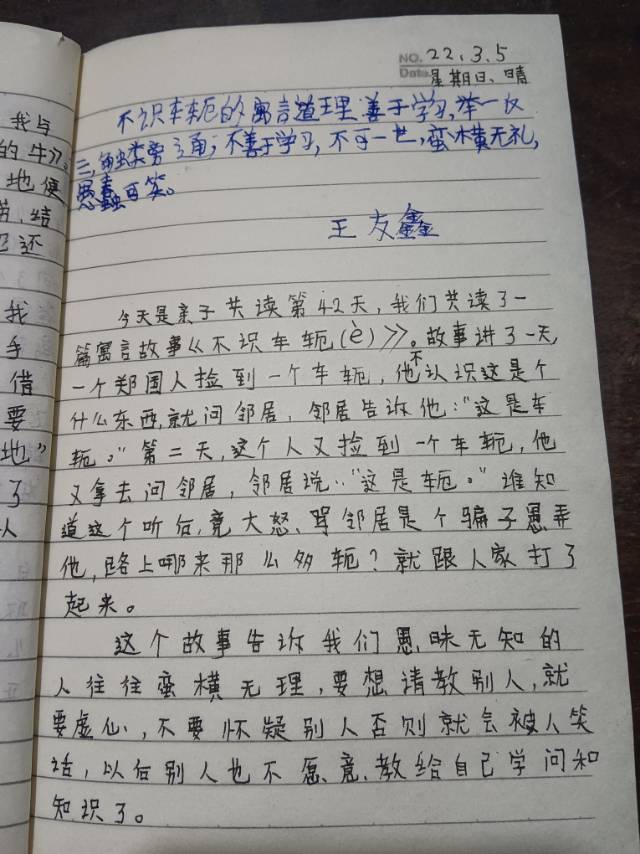 我与
的牛》。
地便
苦,结
还
我
手
借
要
地”
了
从
NO. 22.3.5
Date. 星期日、晴
不识车轭的寓言道理善于学习,举一反
三,触类旁通;不善于学习,不可一世,蛮横无礼,
愚蠢可笑。
王友鑫
今天是亲子共读第42天,我们共读了一
篇寓言故事《不识车轭(è)》。故事讲了一天,
一个郑国人捡到一个车轭,他不认识这是个
什么东西,就问邻居,邻居告诉他:“这是车
轭。”第二天,这个人又捡到一个车轭,他
又拿去问邻居,邻居说:“这是车轭。”谁知
道这个听后,竟大怒、骂邻居是个骗子愚弄
他,路上哪来那么多轭?就跟人家打了
起来。
这个故事告诉我们愚昧无知的
人往往蛮横无理,要想请教别人,就
要虚心,不要怀疑别人否则就会被人笑
话,以后别人也不愿意、教给自己学问和
知识了。